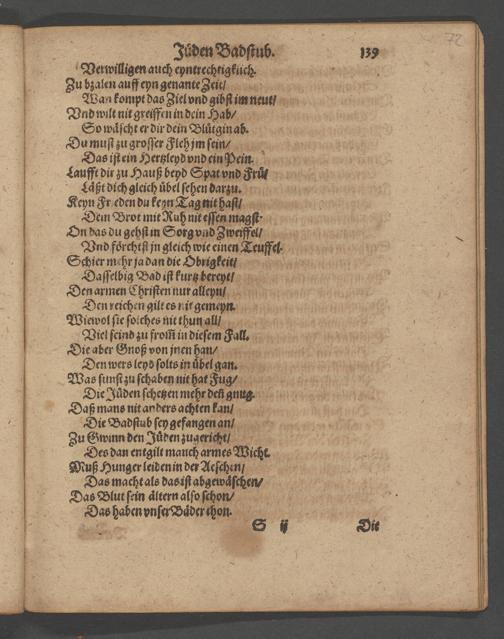 72
Jüden Badstub. 139
Verwilligen auch eyntrechtigklich.
Zu bzalen auff eyn genante Zeit/
Wan kompt das Ziel vnd gibst im neut/
Vnd wilt nit greiffen in dein Hab/
So wäscht er dir dein Blütgin ab.
Du must zu grosser Fleh jm sein/
Das ist ein Hertzleyd vnd ein Pein.
Laufft dir zu Hauß beyd Spat vnd Frü/
Läßt dich gleich übel sehen darzu.
Keyn Frieden du keyn Tag nit hast/
Dein Brot mit Ruh nit essen magst.
On das du gehst in Sorg vnd Zweiffel/
Vnd förchtst jn gleich wie einen Teuffel.
Schier mehr ja dan die Obrigkeit/
Dasselbig Bad ist kurtz bereyt/
Den armen Christen nur alleyn/
Den reichen gilt es nit gemeyn.
Wiewol sie solches nit thun all/
Viel seind zu from̃ in diesem Fall.
Die aber Gnoß von jnen han/
Den wers leyd solts in übel gan.
Was sunst zu schaben nit hat Fug/
Die Jüden schetzen mehr deñ gnug.
Daß mans nit anders achten kan/
Die Badstub sey gefangen an/
Zu Gwinn den Jüden zugericht/
Des dan entgilt mauch armes Wicht.
Muß Hunger leiden in der Aeschen/
Das macht als das ist abgewäschen/
Das Blut sein ältern also schon/
Das haben vnser Bäder thon.
S ij Die